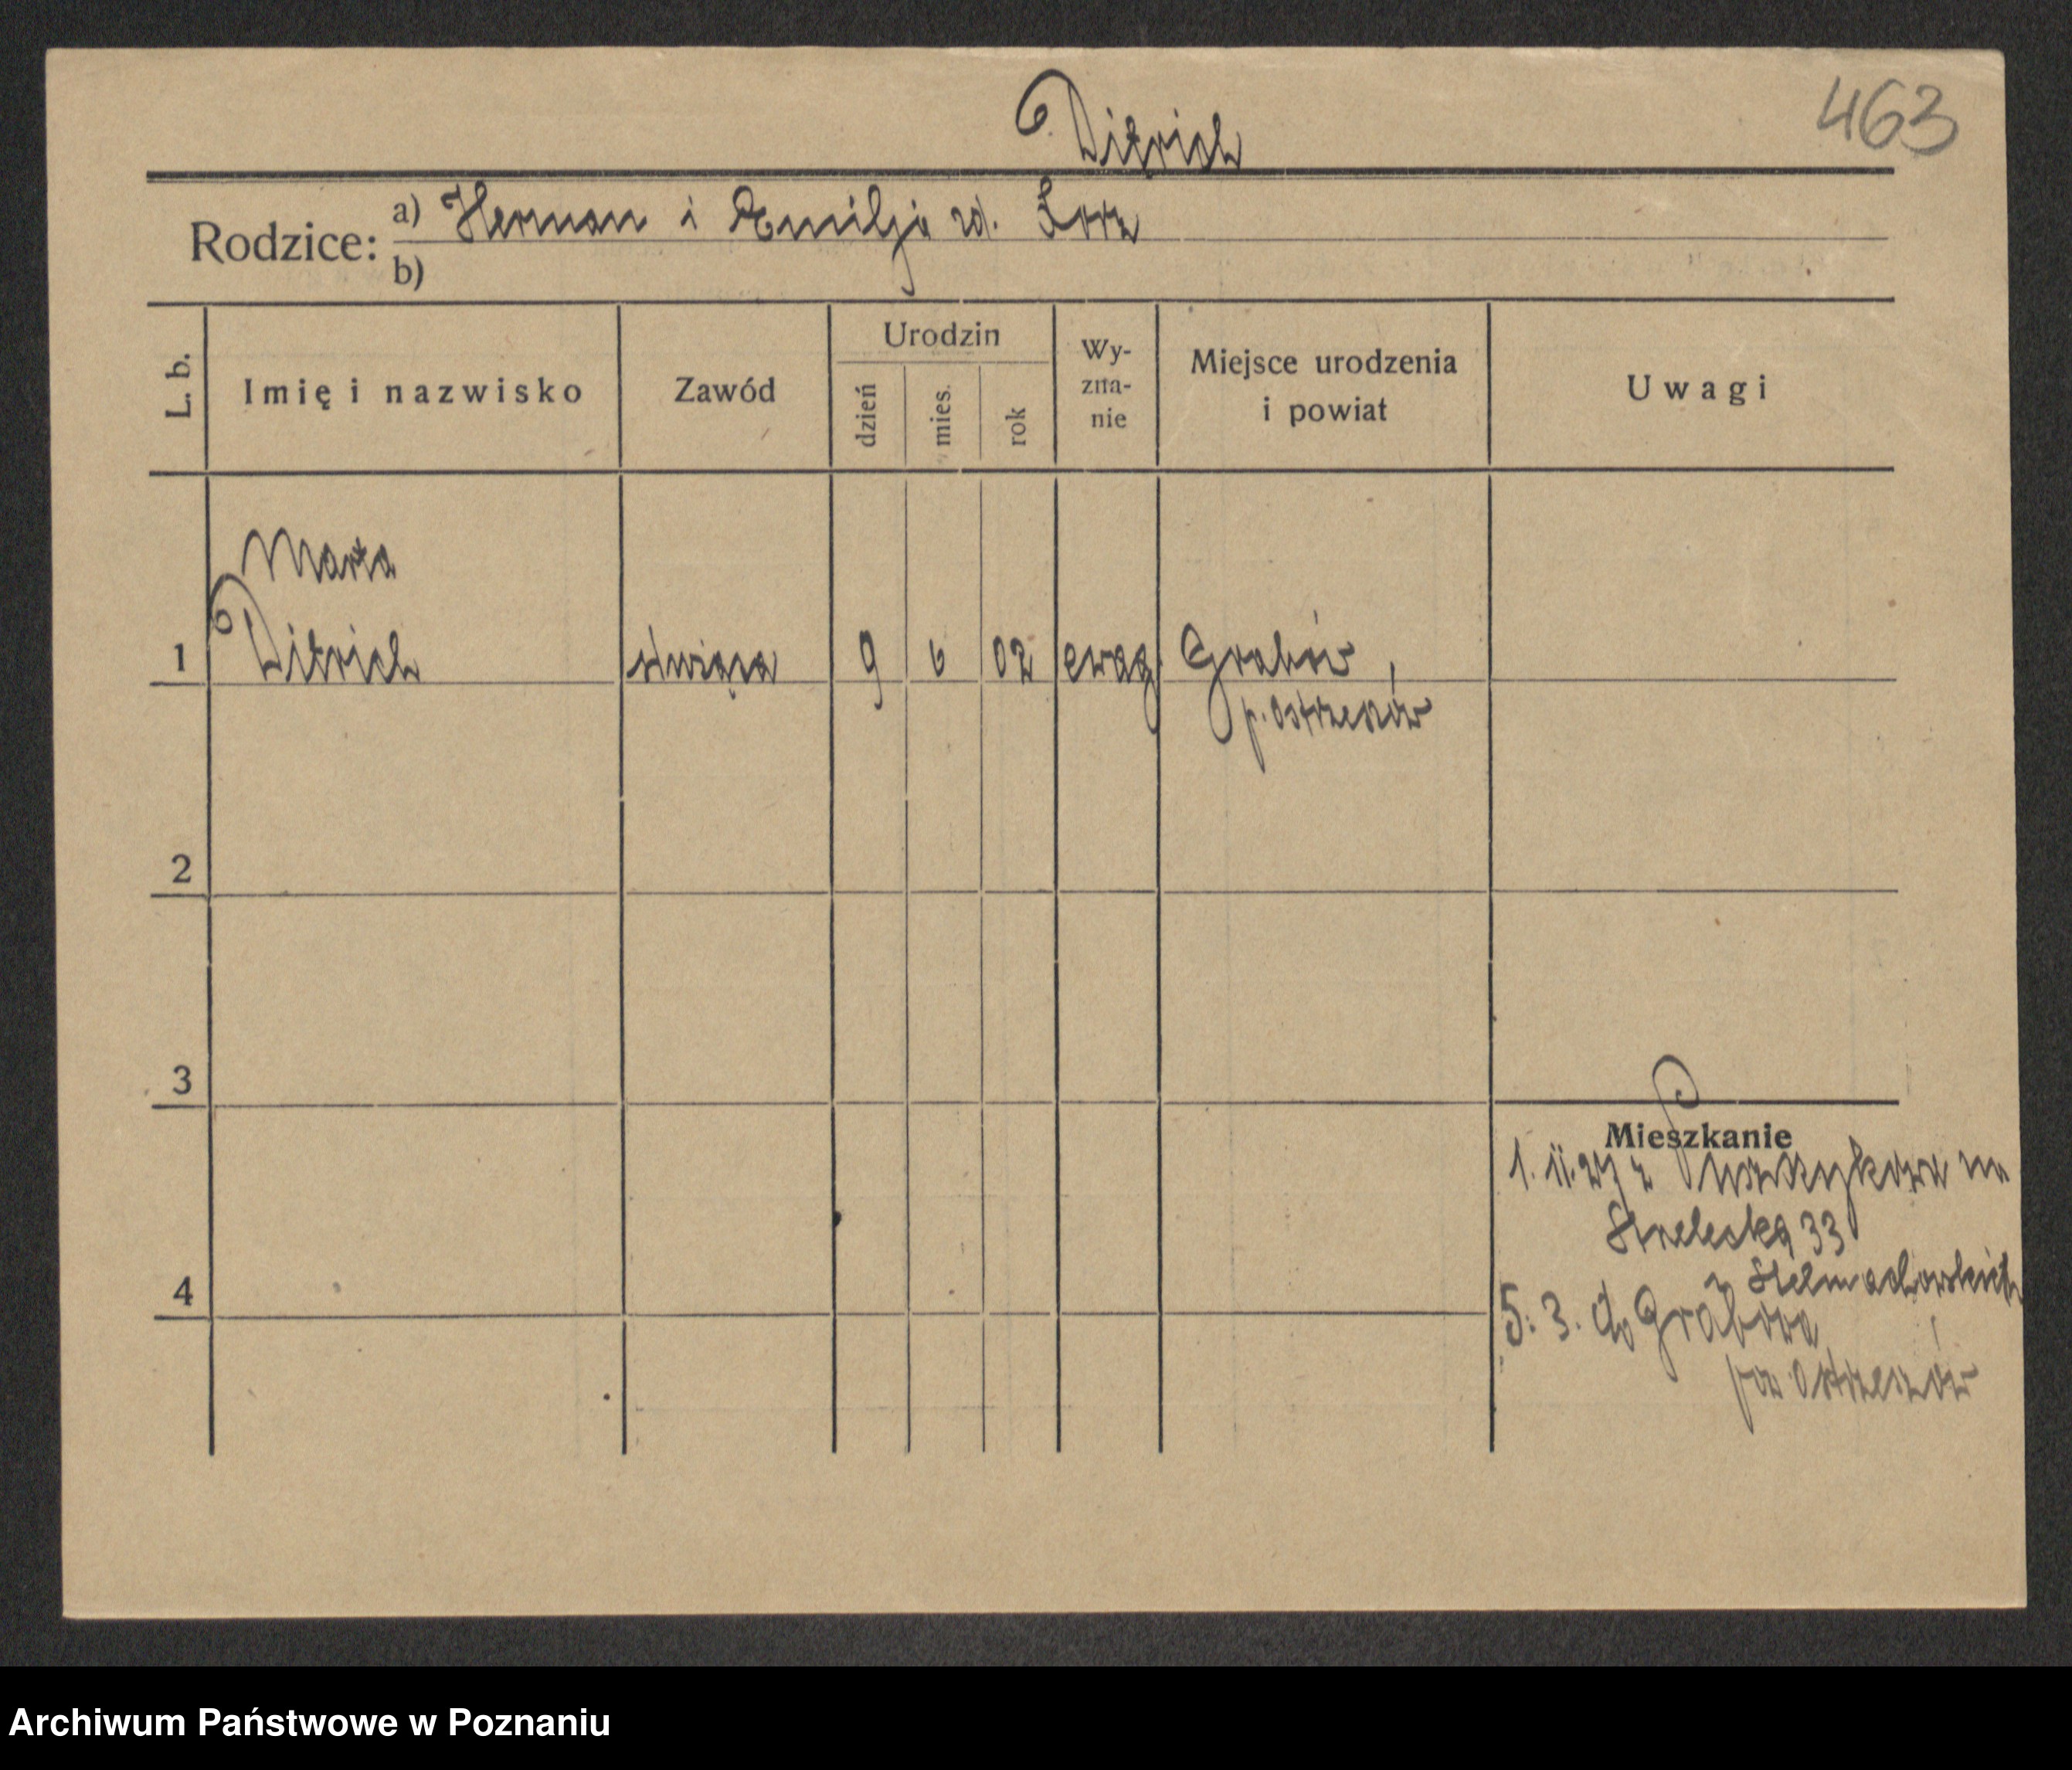 463
Ditrich
Rodzice: a) Herman i Emilja zd. Lorz
b)
L. b. Imię i nazwisko Zawód Urodzin dzień mies. rok Wy-zna-nie Miejsce urodzenia i powiat Uwagi
Marta
1 Ditrich służąca 9 6 02 ewag. Grabów,
p. Ostrzeszów
2
3
Mieszkanie
1. 11. 27 z na
Strzelecka 33
4 z Stelmachowskich
5. 3. do Grabowa
pow Ostrzeszów
Archiwum Państwowe w Poznaniu